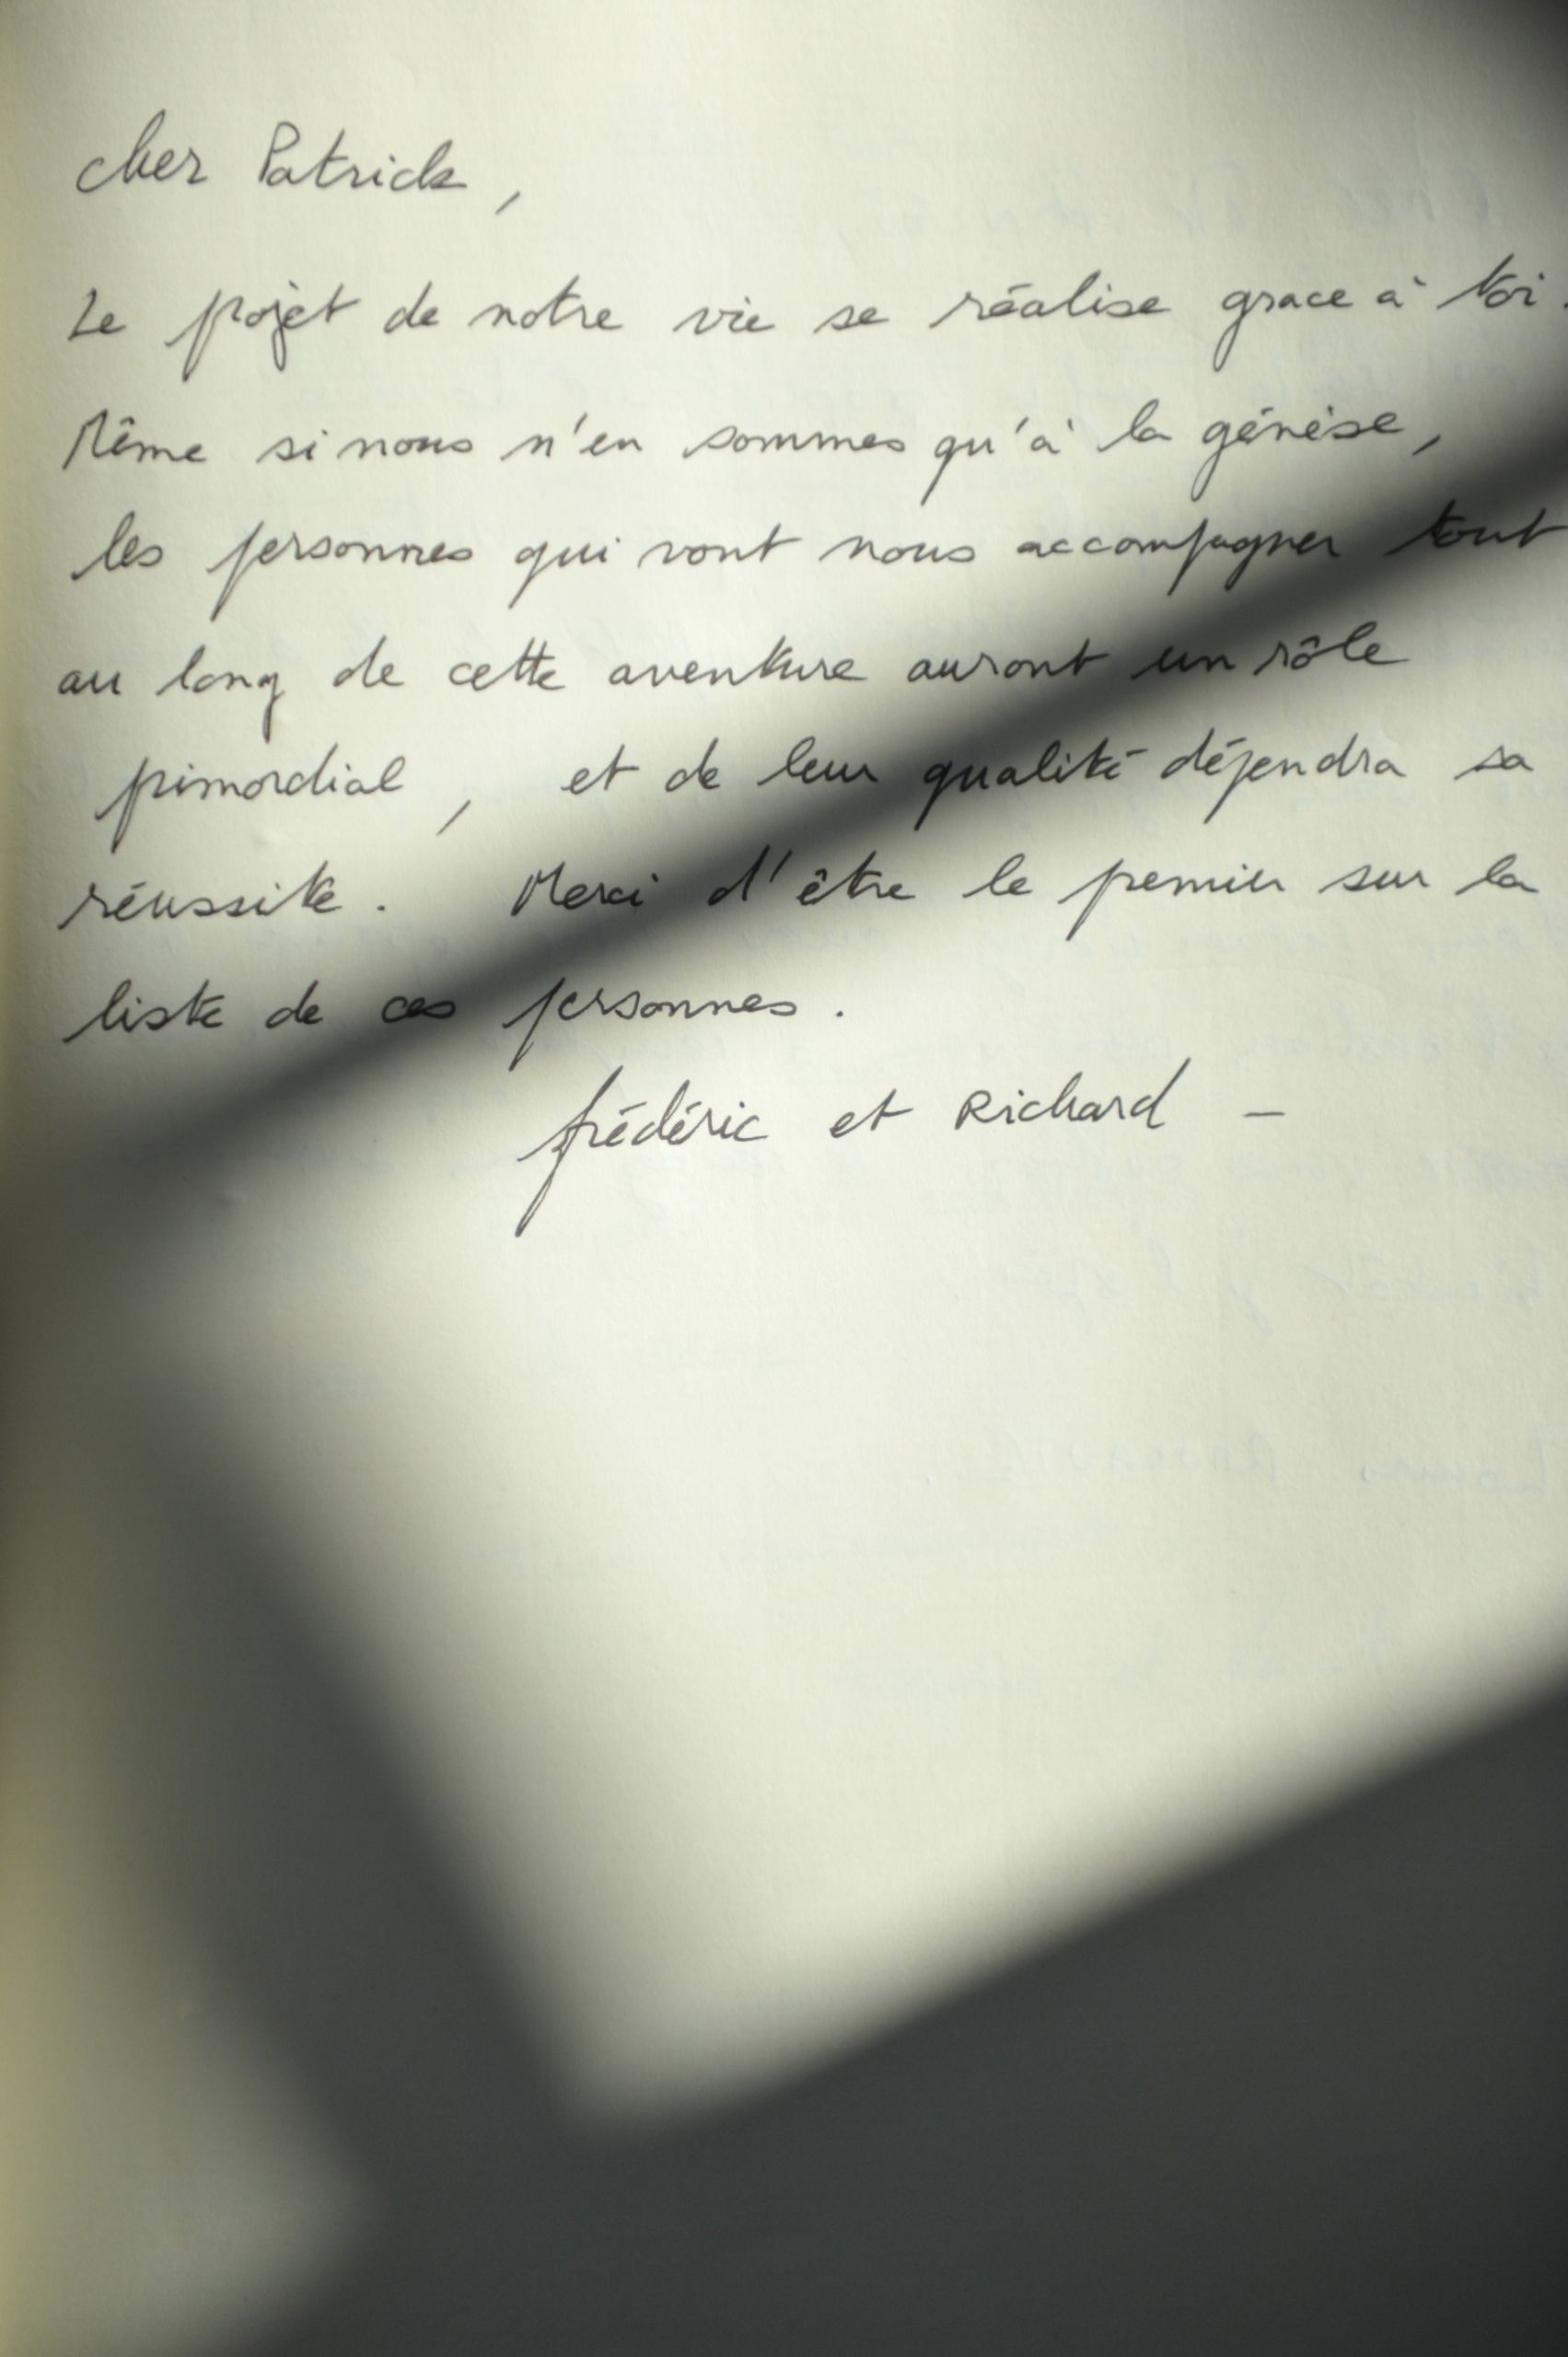 cher Patrick,
Le projet de notre vie se réalise grace à toi.
Même si nous n'en sommes qu'à la génèse,
les personnes qui vont nous accompagner tout
au long de cette aventure auront un rôle
primordial, et de leur qualité dépendra sa
réussite. Merci d'être le premier sur la
liste de ces personnes.
frédéric et Richard -